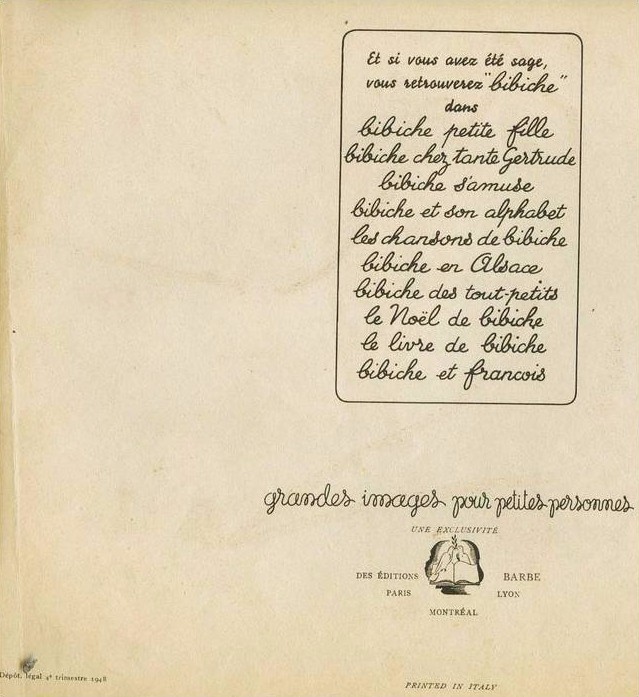 Et si vous avez été sage,
vous retrouverez "bibiche"
dans
bibiche petite fille
bibiche chez tante Gertrude
bibiche s'amuse
bibiche et son alphabet
les chansons de bibiche
bibiche en Alsace
bibiche des tout-petits
le Noël de bibiche
le livre de bibiche
bibiche et francois
grandes images pour petites personnes
UNE EXCLUSIVITÉ
DES ÉDITIONS BARBE
PARIS LYON
MONTRÉAL
Dépôt. légal 4e trimestre 1948
PRINTED IN ITALY